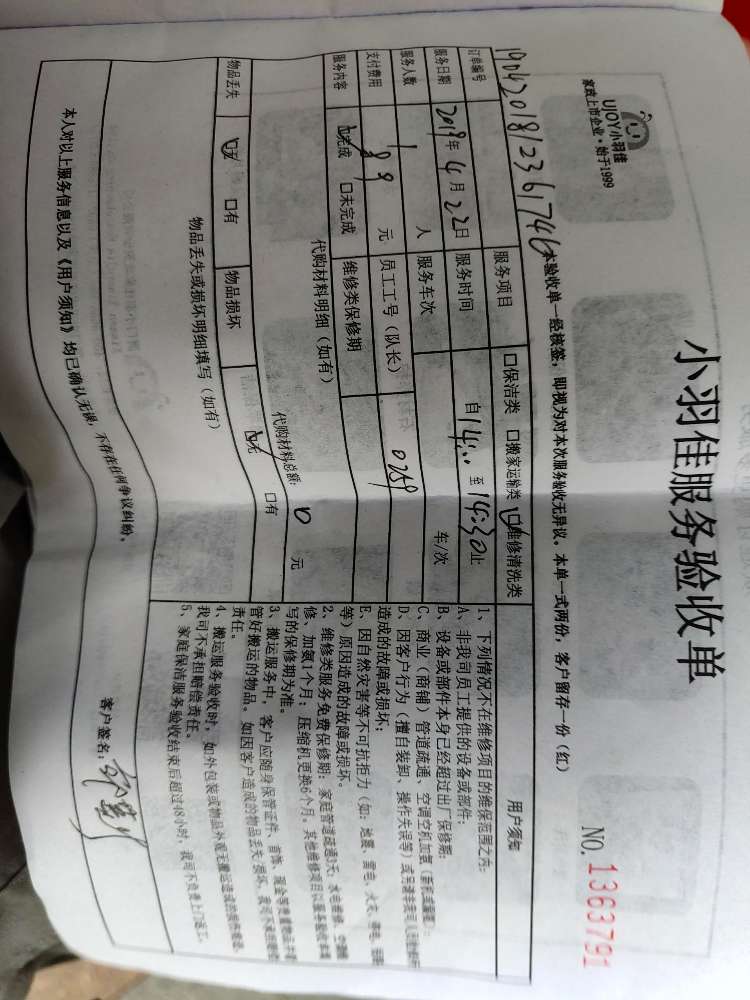 小羽佳服务验收单
UJOY小羽佳
家政上市企业·始于1999
NO. 1363791
本验收单一经核签,即视为对本次服务验收无异议。本单一式两份,客户留存一份(红)
订单编号 1904201812361746
服务项目 口保洁类 口搬家运输类 口维修清洗类
服务日期 2019年4月22日 服务时间 自14:00至14:30止
服务人数 1 人 服务车次 车/次
支付费用 189 元 员工工号(队长) 0259
服务内容 口完成 口未完成 维修类保修期
代购材料明细(如有)
代购材料总额: 0 元
物品丢失 口无 口有 物品损坏 口无 口有
物品丢失或损坏明细填写(如有)
用户须知
1、下列情况不在维修项目的维保范围之内:
A、非我司员工提供的设备或部件;
B、设备或部件本身已经超过出厂保修期;
C、商业(商铺)管道疏通、空调空机加氨
D、因客户行为(擅自装卸、操作失误等)
造成的故障或损坏;
E、因自然灾害等不可抗拒力(如:地震、雷电、火灾
等)原因造成的故障或损坏。
2、维修类服务免费保修期:家庭管道疏通3天;水电维修、空调
修、加氨1个月;压缩机更换6个月。其他维修项目以服务验收单
写的保修期为准。
3、搬运服务中,客户应随身保管证件、首饰、现金等贵重物品
管好搬运的物品。如因客户造成的物品丢失/损坏,我司不承担赔偿
责任。
4、搬运服务验收时,如外包装或物品外观无搬运造成的损伤痕迹,
我司不承担赔偿责任。
5、家庭保洁服务验收结束后超过48小时,我司不负责上门返工。
本人对以上服务信息以及《用户须知》均已确认无误,不存在任何争议纠纷。
客户签名: